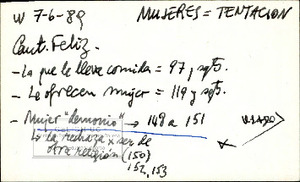 W 7-6-89 MUJERES = TENTACION
Caut. Feliz.
- La que le lleva comida = 97 y sgts.
- Le ofrecen mujer = 119 y sgts.
- Mujer "demonio" → 149 a 151
↳ La rechaza x ser de
otra religión (150)
152, 153